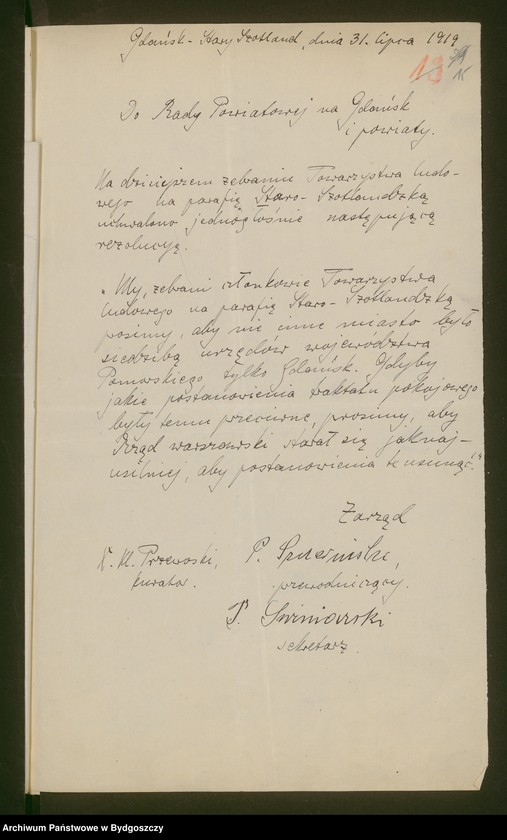 Gdańsk - Stary Szotland, dnia 31. lipca 1919
13
15
Do Rady Powiatowej na Gdańsk
i powiaty.
Na dzisiejszem zebraniu Towarzystwa ludo-
wego na parafię Staro-Szotlandzką
uchwalono jednogłośnie następującą
rezolucyę.
„My, zebrani członkowie Towarzystwa
ludowego na parafię Staro-Szotlandzką
prosimy, aby nie inne miasto było
siedzibą urzędów województwa
Pomorskiego, tylko Gdańsk. Gdyby
jakie postanowienia traktatu pokojowego
były temu przeciwne, prosimy, aby
Rząd warszawski starał się jaknaj-
usilniej, aby postanowienia te usunąć."
Zarząd
Przewoski, P.
kurator. przewodniczący.
P. Świniarski
sekretarz.
Archiwum Państwowe w Bydgoszczy